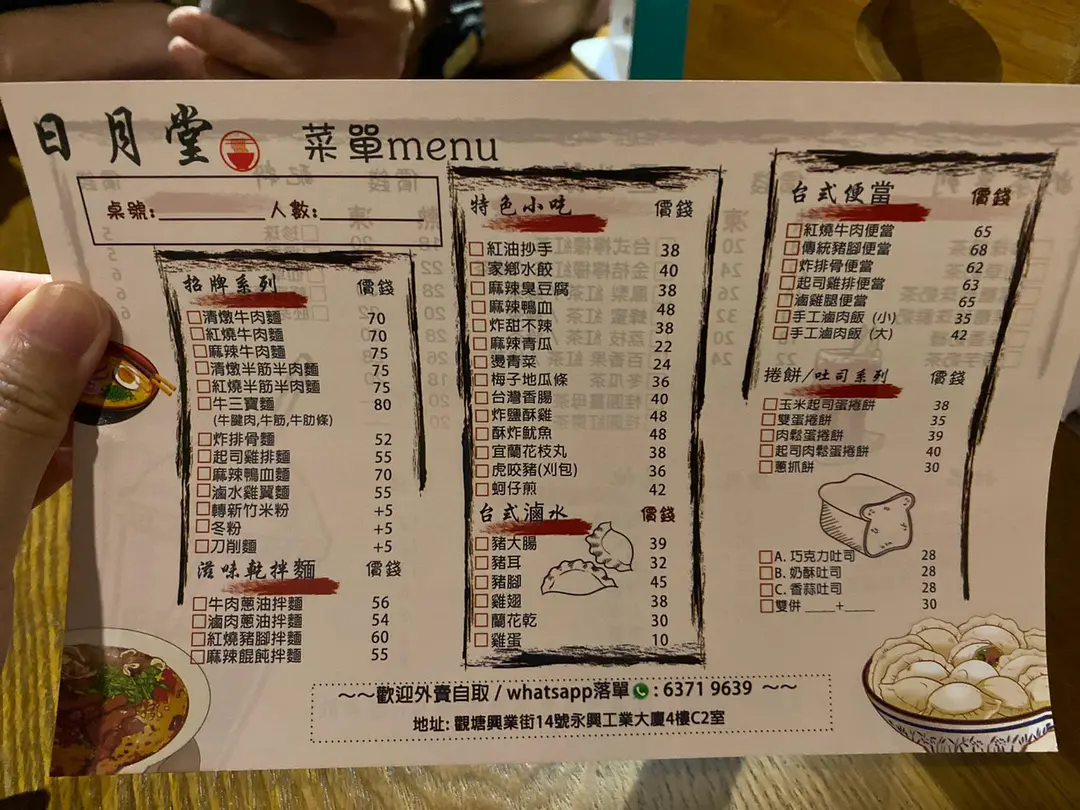 日月堂
菜單menu
桌號:________人數:________
招牌系列 價錢
清燉牛肉麵 70
紅燒牛肉麵 70
麻辣牛肉麵 75
清燉半筋半肉麵 75
紅燒半筋半肉麵 75
牛三寶麵 80
(牛腱肉,牛筋,牛肋條)
炸排骨麵 52
起司雞排麵 55
麻辣鴨血麵 70
滷水雞翼麵 55
轉新竹米粉 +5
冬粉 +5
刀削麵 +5
滋味乾拌麵 價錢
牛肉蔥油拌麵 56
滷肉蔥油拌麵 54
紅燒豬腳拌麵 60
麻辣餛飩拌麵 55
特色小吃 價錢
紅油抄手 38
家鄉水餃 40
麻辣臭豆腐 38
麻辣鴨血 48
炸甜不辣 38
麻辣青瓜 22
燙青菜 24
梅子地瓜條 36
台灣香腸 40
炸鹽酥雞 48
酥炸魷魚 48
宜蘭花枝丸 38
虎咬豬(刈包) 36
蚵仔煎 42
台式滷水 價錢
豬大腸 39
豬耳 32
豬腳 45
雞翅 38
蘭花乾 30
雞蛋 10
台式便當 價錢
紅燒牛肉便當 65
傳統豬腳便當 68
炸排骨便當 62
起司雞排便當 63
滷雞腿便當 65
手工滷肉飯 (小) 35
手工滷肉飯 (大) 42
捲餅/吐司系列 價錢
玉米起司蛋捲餅 38
雙蛋捲餅 35
肉鬆蛋捲餅 39
起司肉鬆蛋捲餅 40
蔥抓餅 30
A. 巧克力吐司 28
B. 奶酥吐司 28
C. 香蒜吐司 28
雙併 ____+____ 30
~~歡迎外賣自取 / whatsapp落單 : 6371 9639 ~~
地址: 觀塘興業街14號永興工業大廈4樓C2室